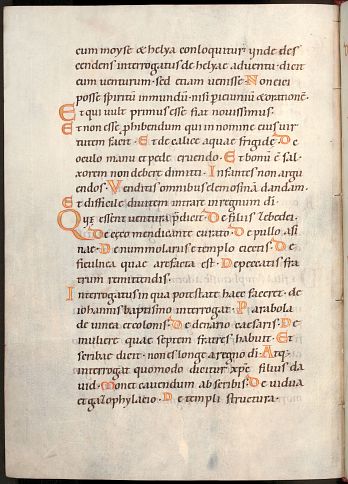 cum moyse & helya conloquitur. ynde des
cendens interrogatus de helyae aduentu. dicit
eum uenturum. sed etiam uenisse. Non eici
posse spiritū inmundū. nisi per ieiuniū & orationē.
Et qui uult primus esse. fiat nouissimus.
Et non essē phibendum qui in nomine eius uir
tutem facit. Et de calice aquae frigidę. De
oculo manu et pede eruendo. Et bonū ē sal.
xorem non debere dimitti. Infantes non argu
endos. Venditis omnibus elemosinā dandam.
Et difficile diuitem intrare in regnum di.
Quę essent uentura pdicit. De filiis zebedei.
De ceco mendicante curato. De pullo asi
nae. De nummolariis e templo eiectis. De
ficulnea quae arefacta est. De peccatis fra
trum remittendis.
Interrogatus in qua potestate haec faceret. de
iohannis baptismo interrogat. Parabola
de uinea et colonis. De denario caesaris. De
muliere quae septem fratres habuit. Et
scribae dicit. non es longe a regno di. Atq:
interrogat quomodo dicitur xpc filius da
uid. Monet cauendum ab scribis. De uidua
et gazophylacio. De templi structura.